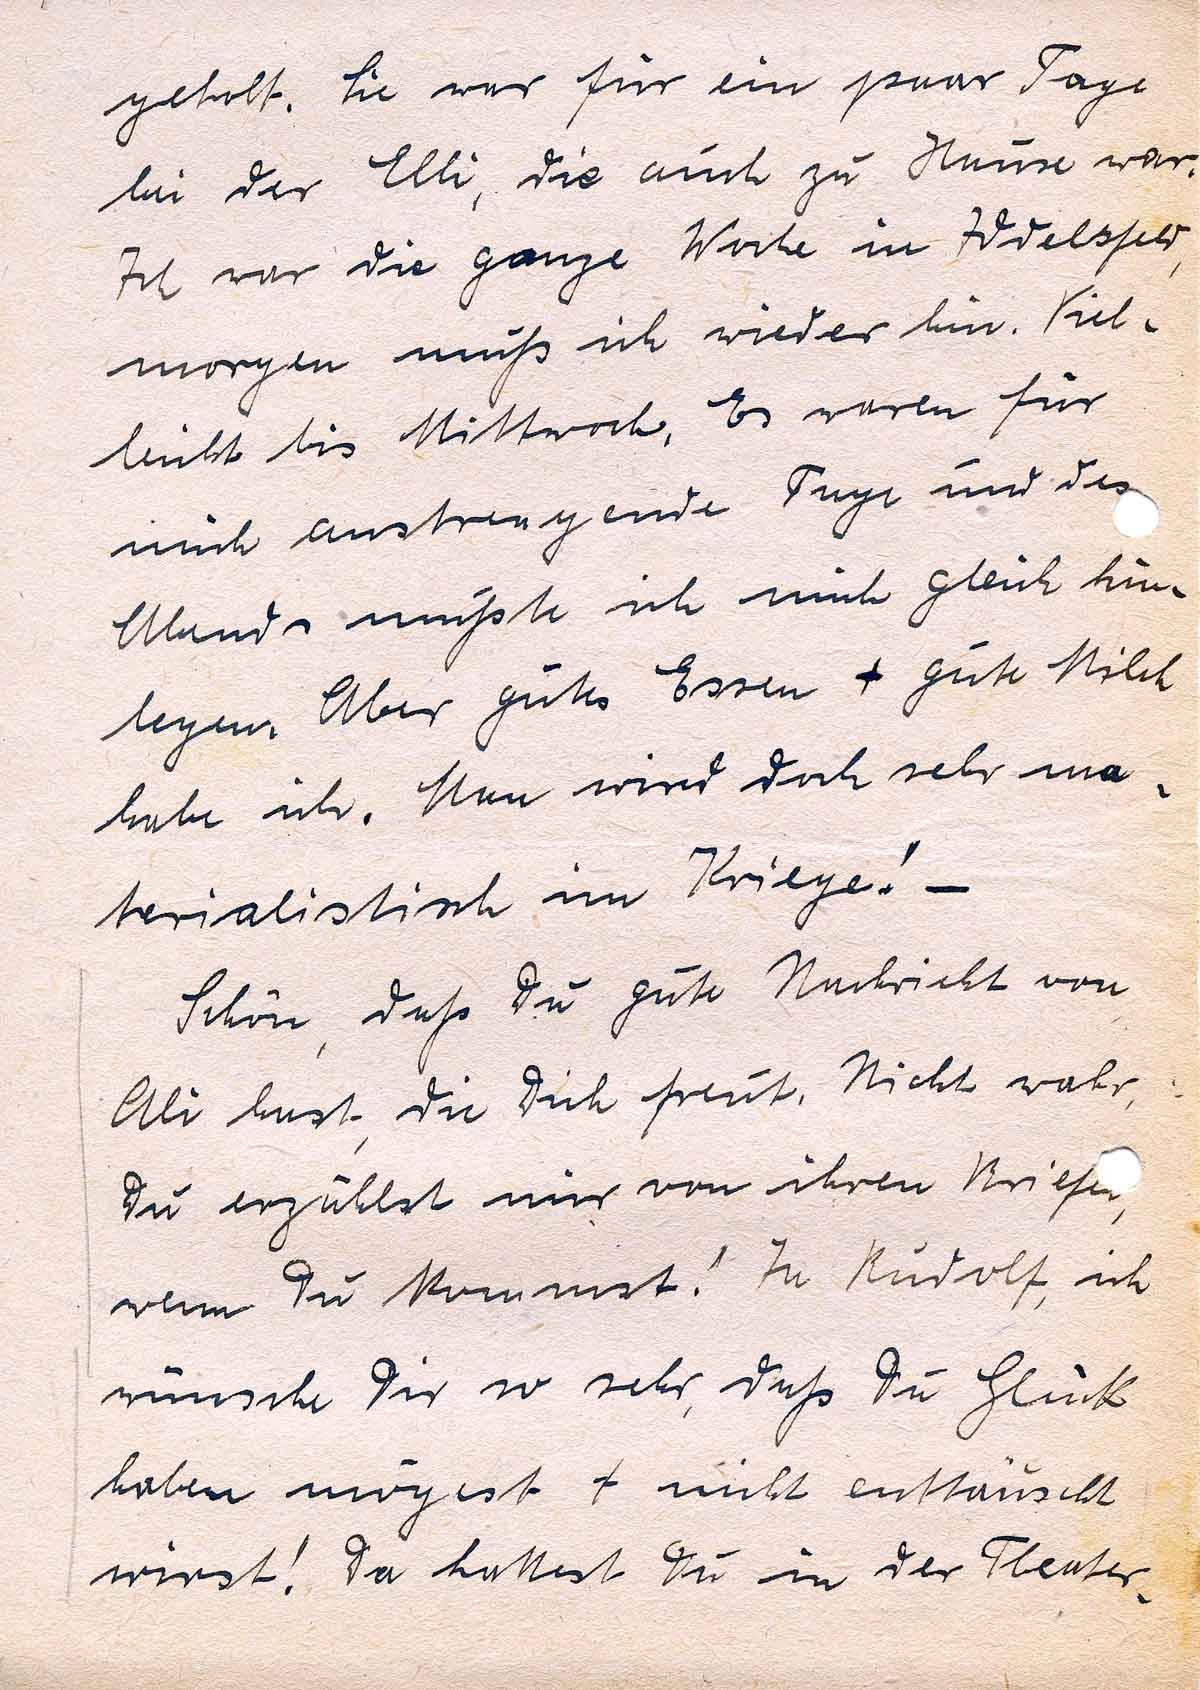 geholt. Sie war für ein paar Tage
bei der Elli, die auch zu Hause war.
Ich war die ganze Woche in Iddelsfeld,
morgen muß ich wieder hin. Viel-
leicht bis Mittwoch. Es waren für
mich anstrengende Tage und des
Abends mußte ich mich gleich hin-
legen. Aber gutes Essen + gute Milch
habe ich. Man wird doch sehr ma-
terialistisch im Kriege! —
Schön, daß Du gute Nachricht von
Ali hast, die Dich freut. Nicht wahr,
Du erzählst mir von ihren Briefen,
wenn Du kommst! Ja Rudolf, ich
wünsche Dir so sehr, daß Du Glück
haben mögest + nicht enttäuscht
wirst! Da hattest Du in der Theater-